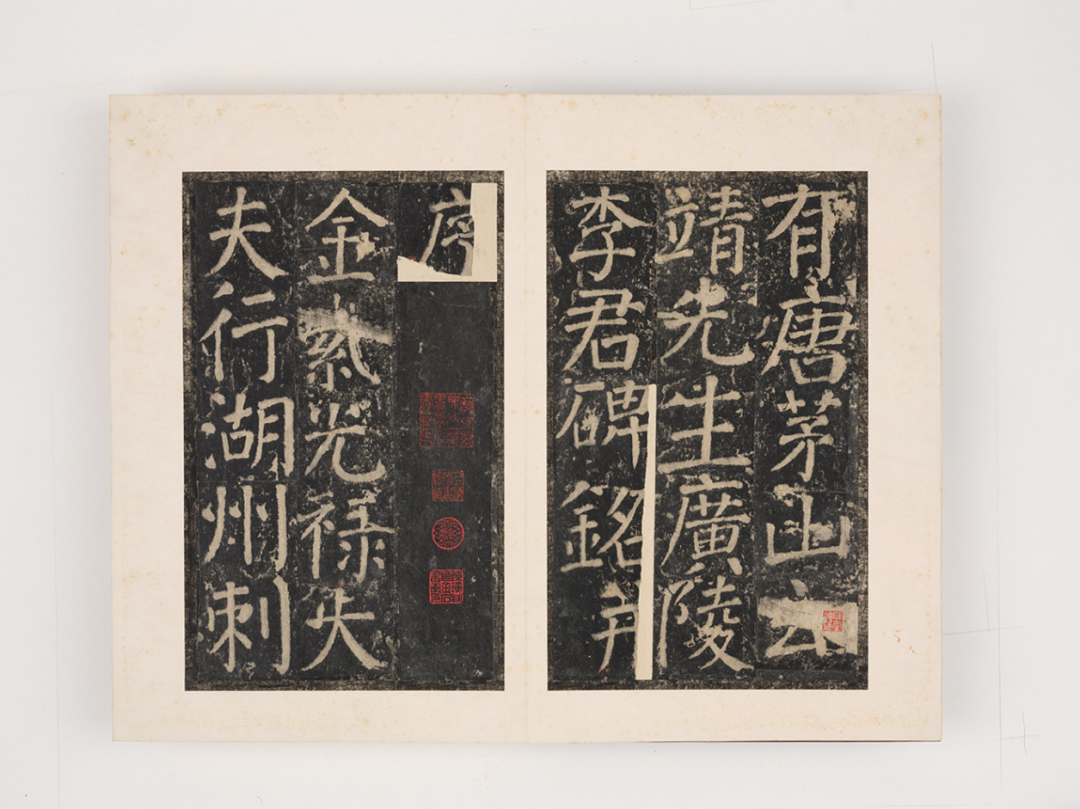 有唐茅山玄
靖先生廣陵
李君碑銘并
序
金紫光禄大
夫行湖州刺